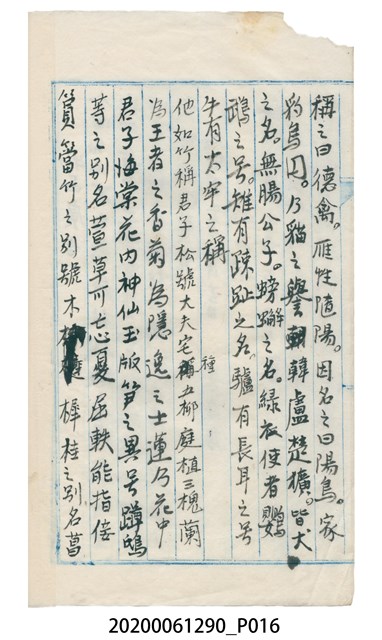 稱之曰德禽。雁性隨陽。因名之曰陽鳥。家
豹烏圓。乃貓之譽韓盧楚獷。皆犬
之名。無腸公子。螃蟹之名。綠衣使者鸚
鵡之号。雉有疎趾之名。驢有長耳之号
牛有太牢之稱
他如竹稱君子松號大夫宅種五柳庭植三槐蘭
為王者之香菊為隱逸之士蓮乃花中
君子海棠花內神仙玉版笋之異号蹲鴟
芋之别名萱草可忘憂屈軼能指佞
篔簹竹之别號木樨桂之别名菖
20200061290_P016